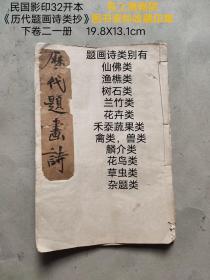 民国影印32开本
《历代题画诗类抄》
下卷二一册 19.8X13.1cm
题画诗类别有
仙佛类
渔樵类
树石类
兰竹类
花卉类
禾泰蔬果类
禽类，兽类
鳞介类
花鸟类
草虫类
杂题类
历代题画诗